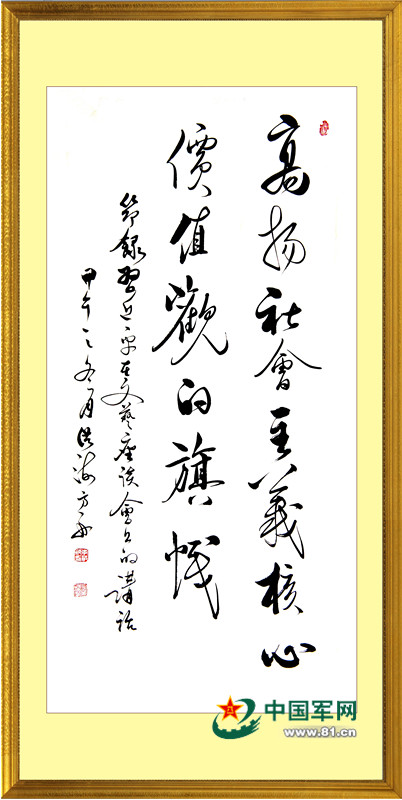 高扬社會主義核心
價值觀的旗幟
節錄習近平在文藝座談會上的講話
甲午之冬月洪海方
中国军网
www.81.cn